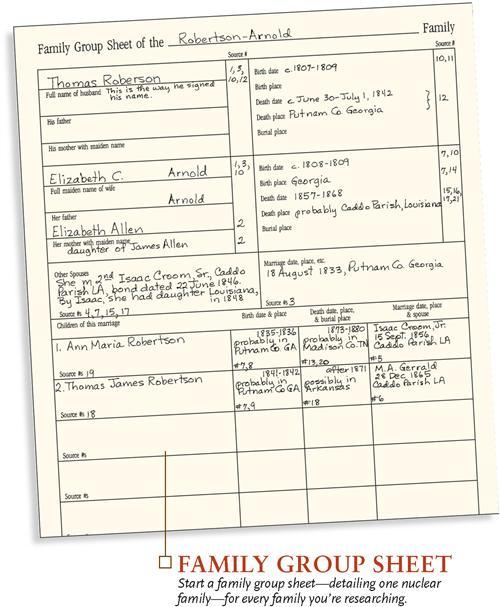 Family Group Sheet of the Robertson-Arnold Family
Source #
Source #
Thomas Roberson
1, 3,
10, 12
Full name of husband This is the way he signed
his name.
Birth date c.1807-1809
10, 11
Birth place
His father
Death date c June 30-July 1, 1842
} 12
Death place Putnam Co. Georgia
His mother with maiden name
Burial place
Elizabeth C. Arnold
1, 3,
10
Full maiden name of wife
Arnold
Her father
Elizabeth Allen
2
Her mother with maiden name
daughter of James Allen
2
Birth date c.1808-1809
7, 10
Birth place Georgia
7, 14
Death date 1857-1868
15, 16,
Death place probably Caddo Parish, Louisiana
17, 21
Burial place
Other Spouses
She m 2nd Isaac Croom, Sr., Caddo
Parish LA, bond dated 22 June 1846.
By Isaac, she had daughter Louisiana,
in 1848
Source #s 4, 7, 15, 17
Marriage date, place, etc.
18 August 1833, Putnam Co. Georgia
Source #s 3
Children of this marriage
Birth date & place
Death date, place,
& burial place
Marriage date, place
& spouse
1. Ann Maria Robertson
Source #s 19
1835-1836
probably in
Putnam Co. GA
#7,8
1873-1880
probably in
Madison Co. TN
#13,20
Isaac Croom, Jr.
15 Sept. 1856,
Caddo Parish LA
#5
2. Thomas James Robertson
Source #s 18
1841-1842
probably in
Putnam Co GA
#7,9
after 1871
possibly in
Arkansas
#18
M.A. Gerrald
28 Dec 1865
Caddo Parish LA
#6
Source #s
Source #s
FAMILY GROUP SHEET
Start a family group sheet—detailing one nuclear
family—for every family you're researching.